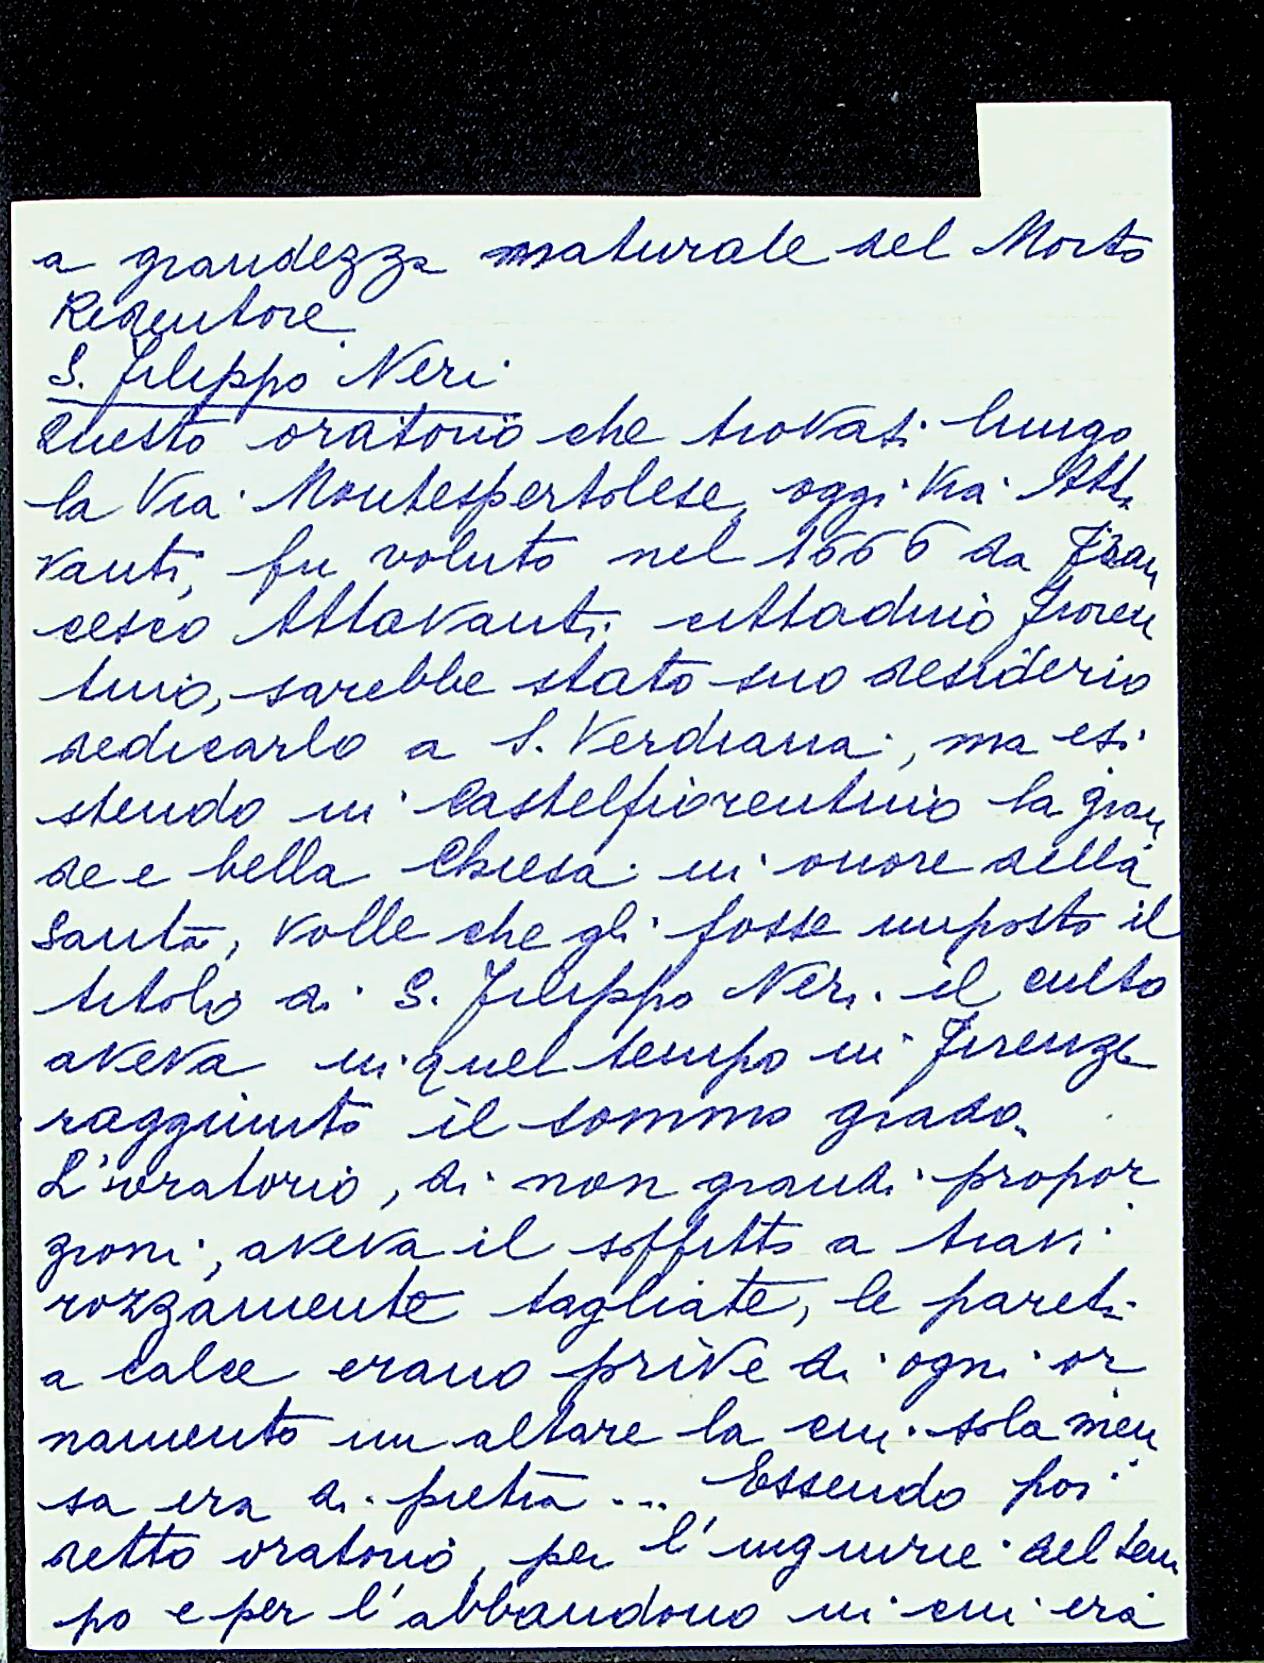 a grandezza naturale del Morto
Redentore.
S. Filippo Neri
Questo oratorio che trovasi lungo
la Via Montespertolese, oggi Via Atta
vanti, fu voluto nel 1666 da Fran
cesco Attavanti cittadino fioren
tino, sarebbe stato suo desiderio
dedicarlo a S. Verdiana, ma esi
stendo in Castelfiorentino la gran
de e bella Chiesa in onore della
Santa, volle che gli fosse imposto il
titolo di S. Filippo Neri il culto
aveva in quel tempo in Firenze
raggiunto il sommo grado.
L'oratorio, di non grandi propor
zioni, aveva il soffitto a travi
rozzamente tagliate, le pareti
a calce erano prive di ogni or
namento un altare la cui sola men
sa era di pietra ... Essendo poi
detto oratorio, per l'ingiurie del tem
po e per l'abbandono in cui era